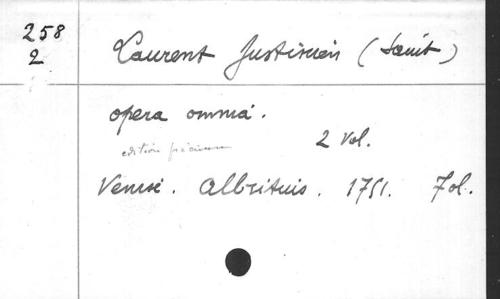 258
2
Laurent Justinien (Saint)
opera omnia.
edition précieuse
2 vol.
Venise. Albritius. 1751. Fol.